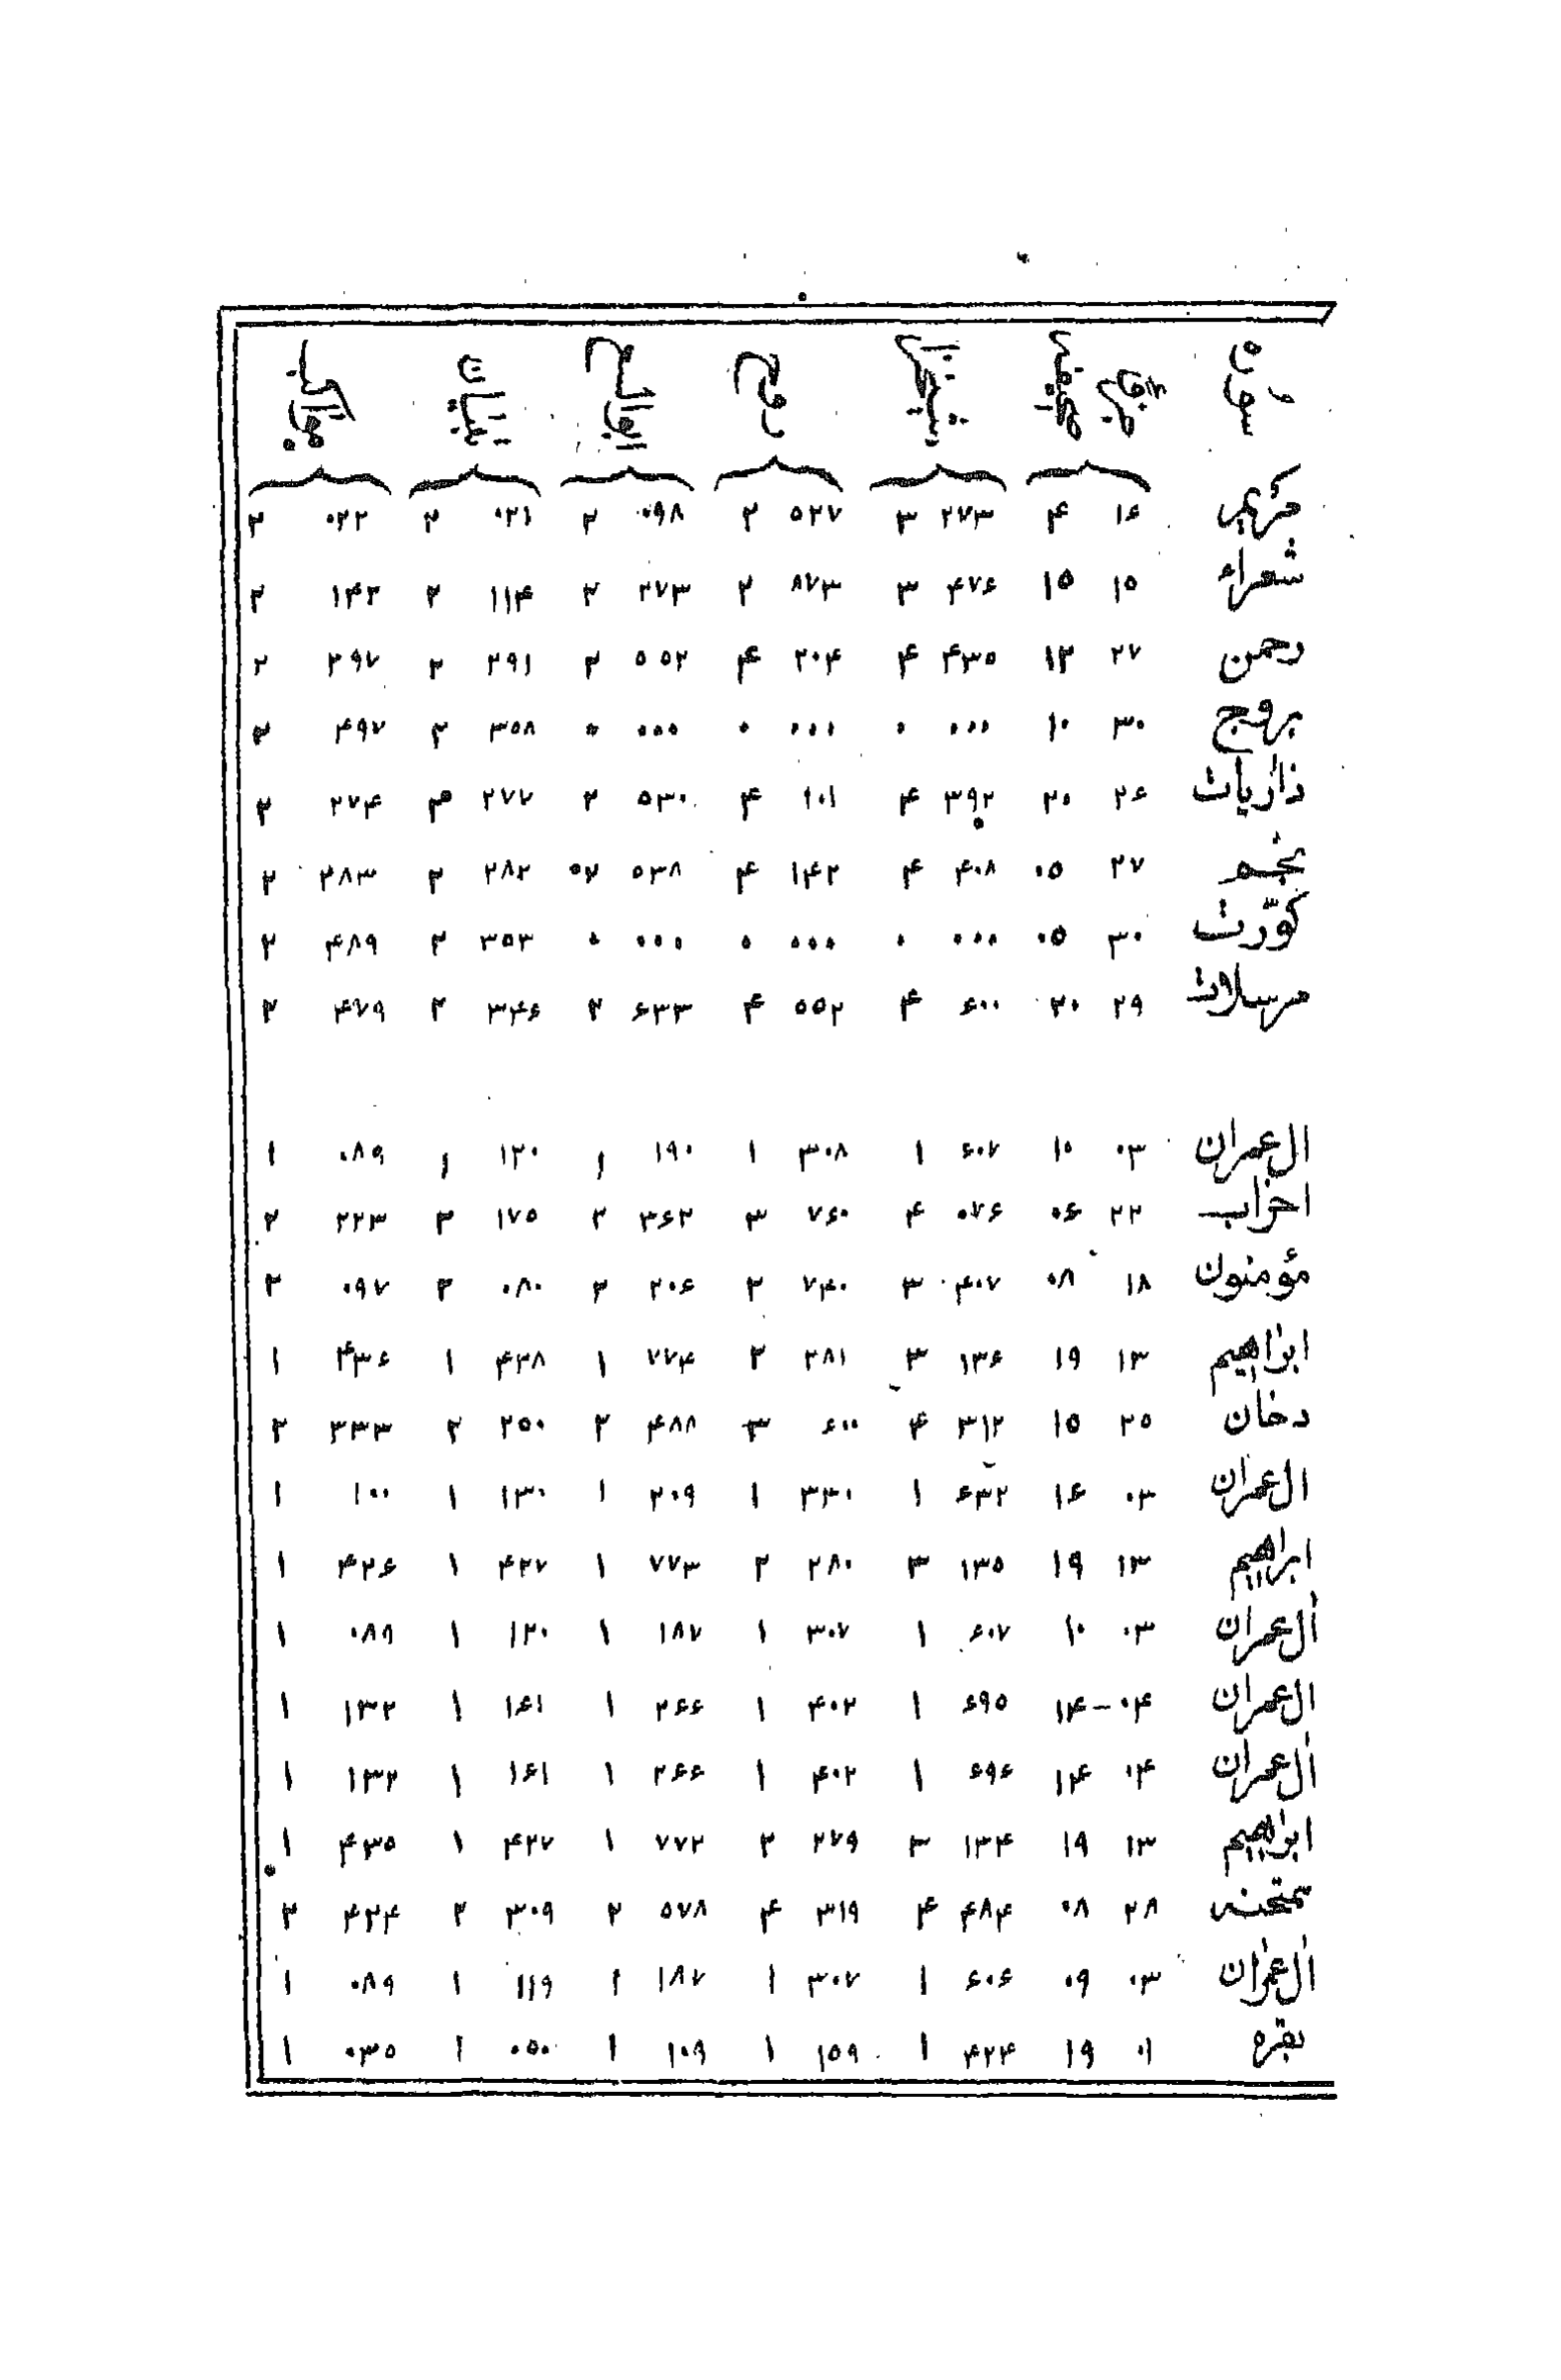 مریم ۱۶ ۴ ۲۷۳ ۳ ۵۲۷ ۲ ۰۹۸ ۲ ۰۲۱ ۲ ۰۲۲ ۲
شعراء ۱۵ ۱۵ ۴۷۶ ۳ ۸۷۳ ۲ ۲۷۳ ۲ ۱۱۴ ۲ ۱۴۲ ۲
رحمن ۲۷ ۱۲ ۴۳۵ ۴ ۲۰۴ ۴ ۵۵۲ ۲ ۲۹۱ ۲ ۲۹۷ ۲
بروج ۳۰ ۱۰ ۰۰۰ ۰ ۰۰۰ ۰ ۰۰۰ ۰ ۳۵۸ ۲ ۴۹۷ ۲
ذاریات ۲۶ ۲۰ ۳۹۲ ۴ ۱۰۱ ۴ ۵۳۰ ۲ ۲۷۷ ۲ ۲۷۴ ۲
نجم ۲۷ ۰۵ ۴۰۸ ۴ ۱۴۲ ۴ ۵۳۸ ۲۸۲ ۲ ۲۸۳ ۲
کوّرت ۳۰ ۰۵ ۰۰۰ ۰ ۰۰۰ ۰ ۰۰۰ ۰ ۳۵۳ ۲ ۴۸۹ ۲
مرسلات ۲۹ ۲۰ ۶۰۰ ۴ ۵۵۲ ۴ ۶۳۳ ۲ ۳۴۶ ۲ ۴۷۹ ۲
ال عمران ۰۳ ۱۰ ۶۰۷ ۱ ۳۰۸ ۱ ۱۹۰ ۱ ۱۲۰ ۱ ۰۸۹ ۱
احزاب ۲۲ ۰۶ ۰۷۶ ۴ ۷۶۰ ۳ ۳۶۲ ۲ ۱۷۵ ۲ ۲۲۳ ۲
مؤمنون ۱۸ ۰۸ ۴۰۷ ۳ ۷۴۰ ۲ ۲۰۶ ۲ ۰۸۰ ۲ ۰۹۷ ۲
ابراهیم ۱۳ ۱۹ ۱۳۶ ۳ ۲۸۱ ۲ ۷۷۴ ۱ ۴۲۸ ۱ ۴۳۶ ۱
دخان ۲۵ ۱۵ ۳۱۲ ۴ ۶۰۰ ۳ ۴۸۸ ۲ ۲۵۰ ۲ ۳۳۳ ۲
ال عمران ۰۳ ۱۶ ۶۳۲ ۱ ۳۳۰ ۱ ۲۰۹ ۱ ۱۳۰ ۱ ۱۰۰ ۱
ابراهیم ۱۳ ۱۹ ۱۳۵ ۳ ۲۸۰ ۲ ۷۷۳ ۱ ۴۲۷ ۱ ۴۲۶ ۱
ال عمران ۰۳ ۱۰ ۶۰۷ ۱ ۳۰۷ ۱ ۱۸۷ ۱ ۱۲۰ ۱ ۰۸۸ ۱
ال عمران ۰۴-۱۴ ۶۹۵ ۱ ۴۰۲ ۱ ۲۶۶ ۱ ۱۶۱ ۱ ۱۳۲ ۱
ال عمران ۰۴ ۱۴ ۶۹۶ ۱ ۴۰۲ ۱ ۲۶۶ ۱ ۱۶۱ ۱ ۱۳۲ ۱
ابراهیم ۱۳ ۱۹ ۱۳۴ ۳ ۲۷۹ ۲ ۷۷۲ ۱ ۴۲۷ ۱ ۴۳۵ ۱
ممتحنه ۲۸ ۰۸ ۴۸۴ ۴ ۳۱۹ ۴ ۵۷۸ ۲ ۳۰۹ ۲ ۴۲۴ ۲
ال عمران ۰۳ ۰۹ ۶۰۶ ۱ ۳۰۷ ۱ ۱۸۷ ۱ ۱۱۹ ۱ ۰۸۹ ۱
بقره ۰۱ ۱۹ ۴۲۴ ۱ ۱۵۹ ۱ ۱۰۹ ۱ ۰۵۰ ۱ ۰۳۵ ۱